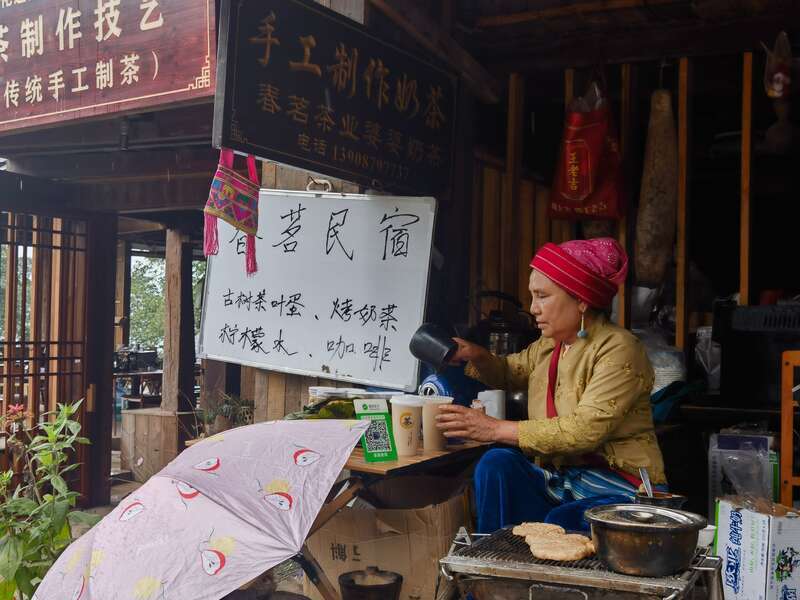 茶制作技艺
传统手工制茶）
手工制作奶茶
春茗茶业婆婆奶茶
电话 13908797737
春茗民宿
古树茶叶蛋、烤奶茶
柠檬水、咖啡
王老吉
茶